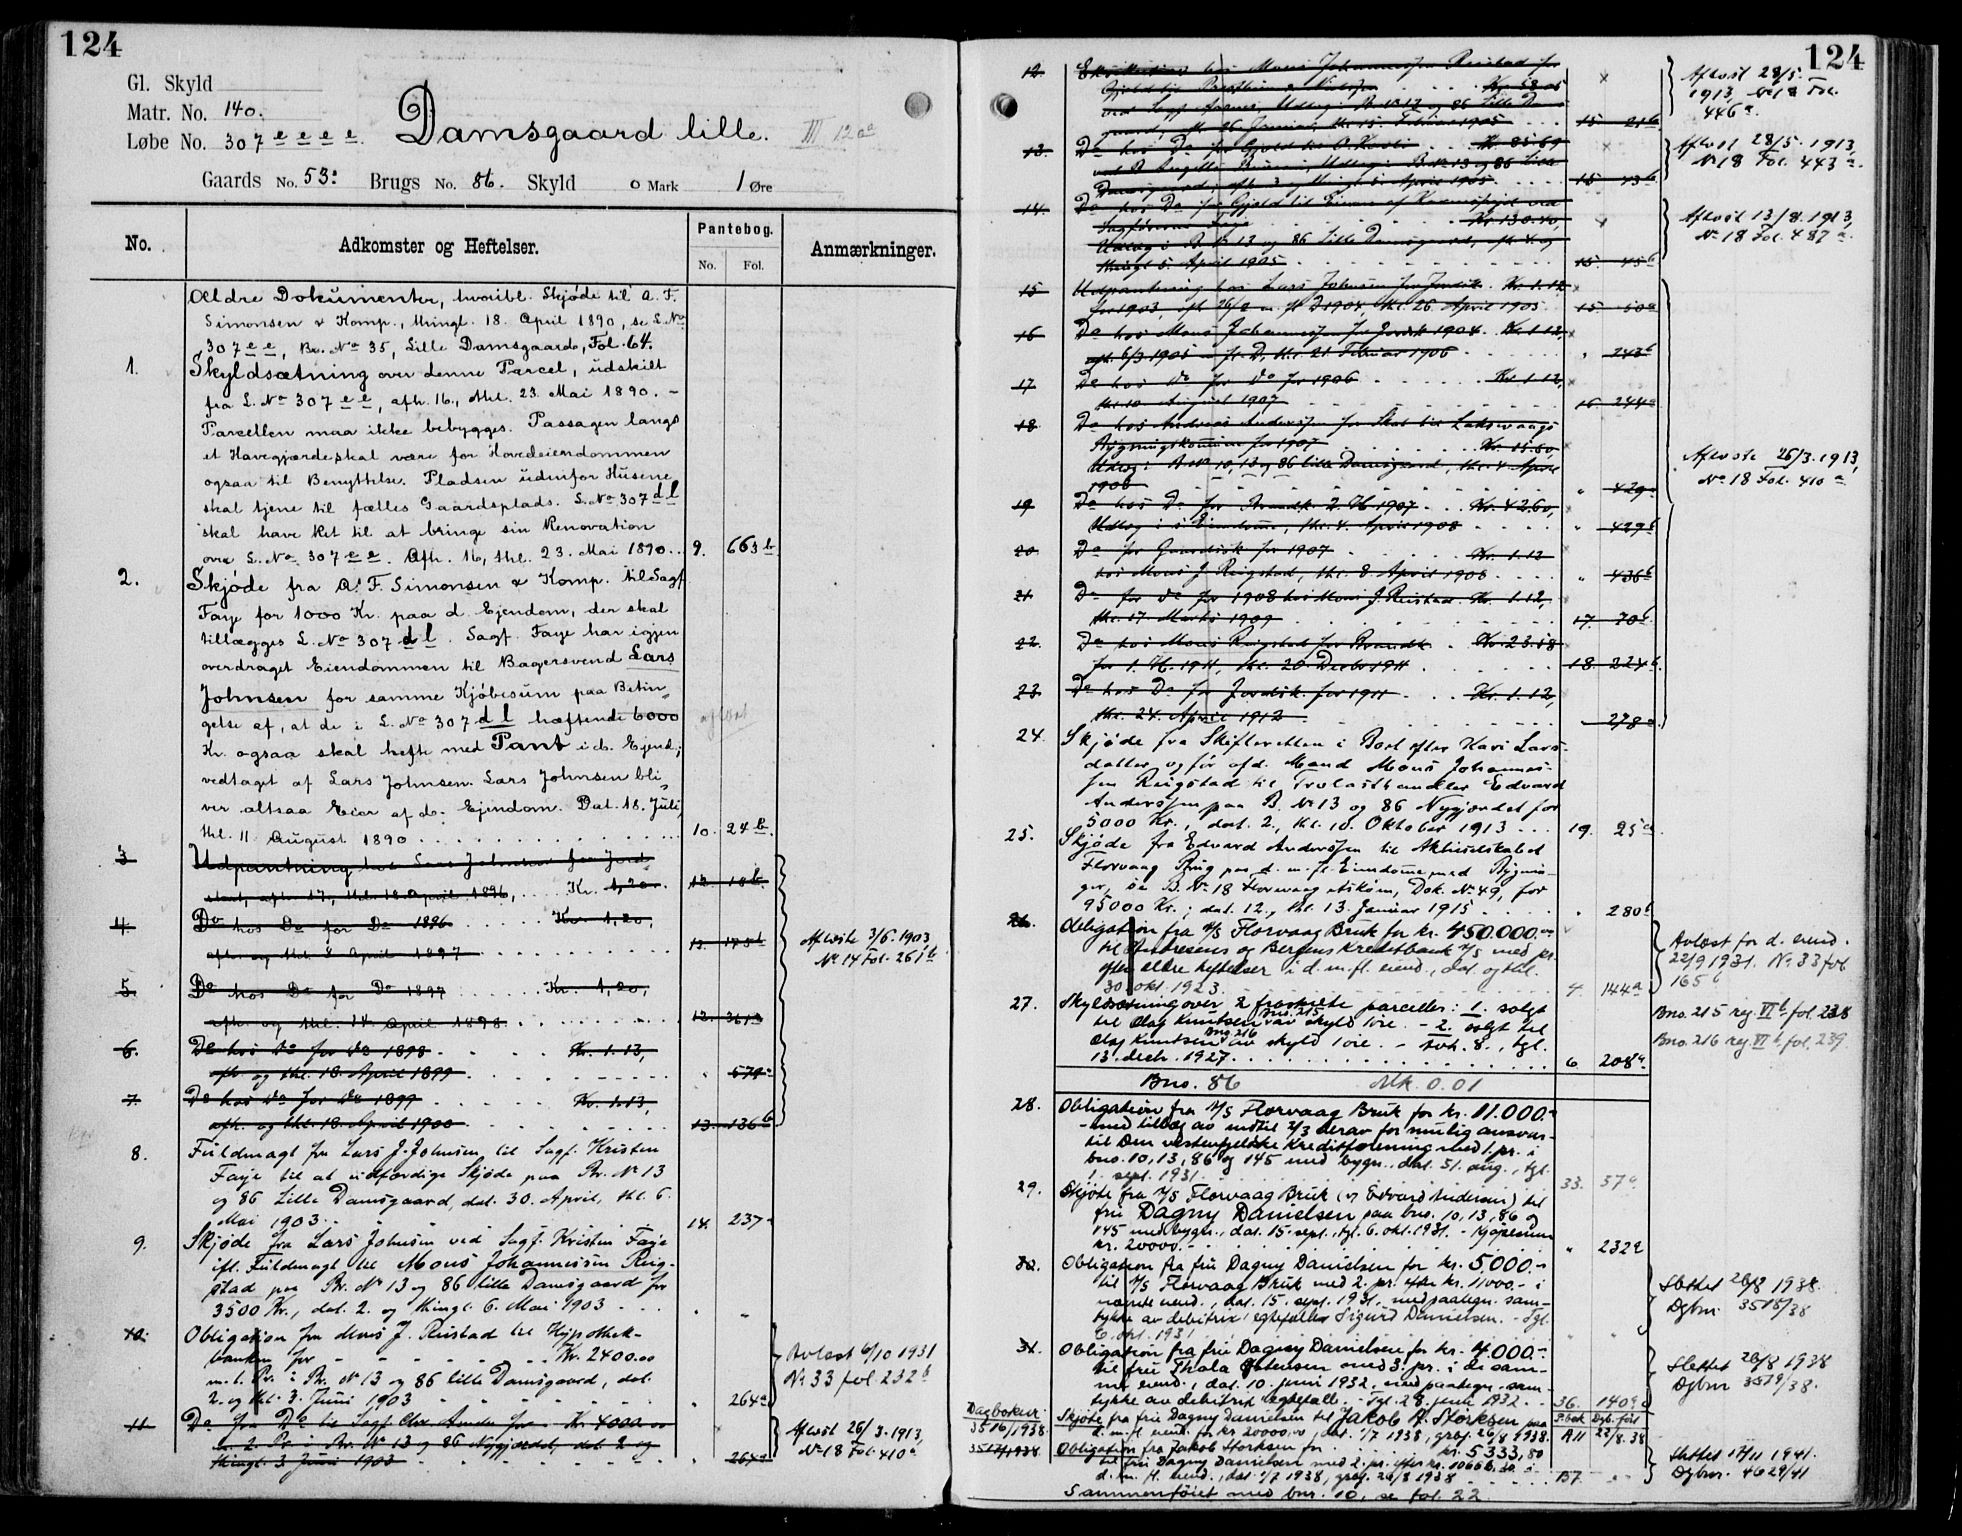 124
Gl. Skyld
Matr. No. 140.
Løbe No. 307 e e e e
Damsgaard lille.
III 120a
Gaards No. 53: Brugs No. 86. Skyld 0 Mark 1 Øre
No.
Adkomster og Heftelser.
Pantebog.
No. Fol.
Anmærkninger.
Ældre Dokumenter, hvoribl. Skjøde til A. F.
Simonsen & Komp., thingl. 18. April 1890, se L.No
307 e e, Br. No 35, Lille Damsgaard, Fol. 64.
1. Skyldsætning over denne Parcel, udskilt
fra L. No 307 e e, afh. 16., thl. 23. Mai 1890. –
Parcellen maa ikke bebygges. Passagen langs
et Havegjærde skal være for Hovedeiendommen
ogsaa til Benyttelse. Pladsen udenfor Husene
skal tjene til fælles Gaardsplads. L. No 307 d l
skal have Ret til at bringe sin Renovation
over L. No 307 e e. Afh. 16, thl. 23. Mai 1890... 9. 663 b
2. Skjøde fra A. F. Simonsen & Komp. til Sagf.
Faye for 1000 Kr. paa d. Ejendom, der skal
tillægges L. No 307 d l. Sagf. Faye har igjen
overdraget Eiendommen til Bagersvend Lars
Johnsen for samme Kjøbesum paa Betin„
gelse af, at de i L. No 307 d l hæftende 6000 afløst
Kr. ogsaa skal hefte med Pant i d. Ejend.;
vedtaget af Lars Johnsen. Lars Johnsen bli„
ver altsaa Eier af d. Ejendom. Dat. 18. Juli,
thl. 11 August 1890 10. 24 b.
3 Udpantning hos Lars Johnsen for Jord-
skat, afh. 17, thl. 18. April 1896, Kr. 1,20. 12. 10 b.
4. Do hos Do for Do 1896 Kr. 1,20,
afh. og thl. 8 April 1897 12. 175 b
Afløste 3/6. 1903,
No 14 Fol. 261 b
5. Do hos Do for Do 1897 Kr. 1,20,
afh. og thl. 14. April 1898 12. 361 a
6. Do hos Do for Do 1898 Kr. 1.13,
afh. og thl. 18. April 1899 " 579 a
7. Do hos Do for Do 1899 Kr. 1.13,
afh. og thl. 18. April 1900 13. 136 b
8. Fuldmagt fra Lars J. Johnsen til Sagf. Kristen
Faye til at udfærdige Skjøde paa Br. No 13
og 86 Lille Damsgaard, dat. 30. April, thl. 6.
Mai 1903 14. 237 a
9. Skjøde fra Lars Johnsen ved Sagf. Kristen Faye
ifl. Fuldmagt til Mons Johannessen Reig-
stad paa Br. No 13 og 86 lille Damsgaard for
3500 Kr., dat. 2. og thingl. 6. Mai 1903 " "
10. Obligation fra Mons J. Reistad til Hypothek-
banken for Kr. 2400.00
m. 1. Pr. i Br. No 13 og 86 lille Damsgaard, dat.
2. og thl. 3. Juni 1903 " 264 a
Avløst 6/10 1931
No 33 fol. 232 b
11. Do fra Do til Sagf. Kr. 4000.00
m. 2. Pr. i Br. No 13 og 86 Nygjærdet, dat. 2 og
thingl. 3. Juni 1903 " 264 a
Afløst 26/3. 1913,
No 18 Fol. 410 a
124
12. Exekution hos Mons Johannessen Reistad for
Kr. 58.05
Udlæg i B. No 13 og 86 Lille Dams-
gaard, 26 Januar, thl. 15. Februar 1905 15 21 b
Afløst 28/5.
1913, No 18 Fol.
446 a.
13. Do hos Do for Gjæld til Kr. 85.69
Udlæg i B. No 13 og 86 Lille
Damsgaard, afh. 3 og thingl. 5. April 1905. 15 43 b
Afløst 28/5. 1913,
No 18 Fol. 443 a.
14. Do hos Do for Gjæld til
Kr. 130.40,
Udlæg i B. No 13 og 86 Lille Damsgaard, afh. 4. og
thingl. 5. April 1905 15. 45 b
Afløst 13/8. 1913,
No 18 Fol. 487 a.
15 Udpantning hos Lars Johnsen for Jordsk. Kr. 1.12
for 1903 thl. 26 April 1905 15 50 a
16 Do hos Mons Johannessen for Jordsk 1904. Kr. 1.12,
afh. 6/3 1905 thl. 21 Februar 1906 " 243 b
17 Do hos do for do for 1906 Kr. 1.12,
thl. 10 August 1907 16. 244 a
18. Do hos Andreas Andersen for Skat til Laksevaags
Bygningskommune for 1907 Kr. 15.60,
Udlæg i B. No 10, 13 og 86 lille Damsgaard, thl. 4. April
1908 " 429 a
Afløste 26/3. 1913,
No 18 Fol. 410 a
19 Do hos Do for Brandk. 2. H. 1907 Kr. 42.60,
Udlæg i s. Eiendomme, thl. 4. April 1908 " 429 b
20 Do for Grundsk for 1907 Kr. 1.12
hos Mons J. Reigstad, thl. 8. April 1908 " 436 b
21. Do for do for 1908 hos Mons J. Reistad Kr. 1.12,
thl. 17. Marts 1909 17. 70 b
22. Do hos Mons Reigstad for Brandk. Kr. 23.18
for 1. H. 1911, thl. 20. Decbr 1911 18. 224 b.
23. Do hos Do for Jordsk. for 1911 Kr. 1.12,
thl. 24. April 1912 278 a
24. Skjøde fra Skifteretten i Boet efter Kari Lars-
datter og før afd. Mand Mons Johannes-
sen Reigstad til Trælasthandler Edvard
Anderssen paa B. No 13 og 86 Nygjærdet for
5000 Kr., dat. 2., thl. 10. Oktober 1913 19. 25 a
25. Skjøde fra Edvard Anderssen til Aktieselskabet
Florvaag Brug paa d. m. fl. Eiendomme med Bygnin-
ger, se B. No 18 Florvaag Askøen, Dok. No 49, for
95000 Kr.; dat. 12., thl. 13. Januar 1915 " 280 b
26. Obligation fra A/S Florvaag Bruk for kr. 450.000.00
til Andresens og Bergens Kreditbank A/S med pr.
efter eldre heftelser i d. m. fl. eiend., dat. og thl.
30 okt. 1923 4. 144 a
Avløst for d. eiend.
22/9 1931. No 33 fol.
165 b
27. Skyldsætning over 2 fraskilte parceller: 1. solgt
til Olaf Knutsen Bno. 215 av skyld 1 øre. – 2. solgt til
Olaf Knutsen Bno 216 av skyld 1 øre. – Avh. 8., tgl.
13. decbr. 1927 6. 208 a.
Bno. 215 reg. VI b fol. 238
Bno. 216 reg. VI b fol. 239
Bno. 86 Mk. 0.01
28. Obligation fra A/S Florvaag Bruk for kr. 11.000.–
– med tillæg av indtil 2/3 derav for mulig ansvar –
til Den vestenfjeldske Kreditforening med 1. pr. i
bno. 10, 13, 86 og 145 med bygn., dat. 31. aug., tgl.
1. sept. 1931 33. 57 a
29. Skjøte fra A/S Florvaag Bruk (v/ Edvard Andersen) til
frue Dagny Danielsen paa bno. 10, 13, 86 og
145 med bygn., dat. 15. sept., tgl. 6. okt. 1931. – Kjøpesum
kr. 20000.– " 232 a
30. Obligation fra fru Dagny Danielsen for kr. 5.000.–
til A/S Florvaag Bruk med 2. pr. efter kr. 11000.– i
nævnte eiend., dat. 15. sept. 1931, med paategn. sam-
tykke av debitrix' egtefælle Sigurd Danielsen. – Tgl.
6. okt. 1931 " "
Slettet 26/8 1938.
Dgbnr. 3518/38
31. Obligation fra frue Dagny Danielsen for kr. 4.000.–
til frue Thala Ottensen med 3. pr. i de sam-
me eiend., dat. 10. juni 1932, med paategn. sam-
tykke av debitrix' egtefælle. – Tgl. 28. juni 1932 36. 140 a
Slettet 26/8 1938
Dgbnr 3579/38.
Dagboknr.
3516/1938. Skjøte fra frue Dagny Danielsen til Jakob H. Storksen paa P.bok Dgb. ført
d. m. fl. eiend. for kr 20000.00, dat. 1/7 1938, grbf. 26/8 1938. A 11 22/8.38
3517/1938. Obligation fra Jakob Storksen for kr. 5.333,80
til fru Dagny Danielsen med 2. pr. efter kr. 10666.20 i
d. m. fl. eiend., dat. 1/7 1938, grbf. 26/8 1938 B7. "
Slettet 17/11 1941.
Dgbnr. 4629/41
Sammenføiet med bnr. 10, se fol. 22.